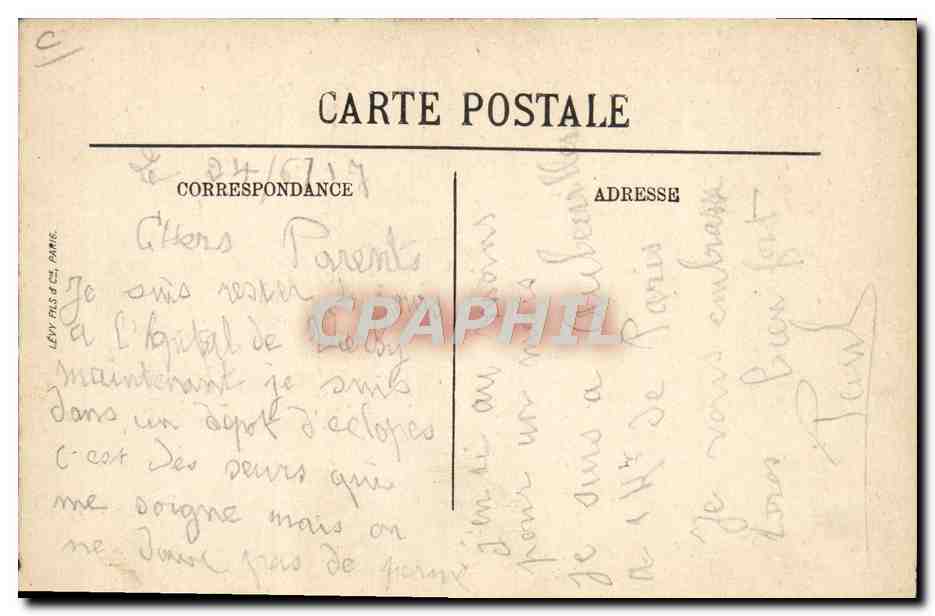 C
CARTE POSTALE
Le 24/6/17
CORRESPONDANCE
ADRESSE
LÉVY FILS & Cie, PARIS.
CHers Parents
Je suis rester
a l'hopital de
maintenant je suis
dans un dépot d'éclopés
c'est des seurs qui
me soigne mais on
ne donne pas de perme
J'en ai au moins
pour un mois
je suis a Aubervilles
a 1 Kr de Paris
Je vous embrasse
tous bien fort
Paul
CRAPHIL